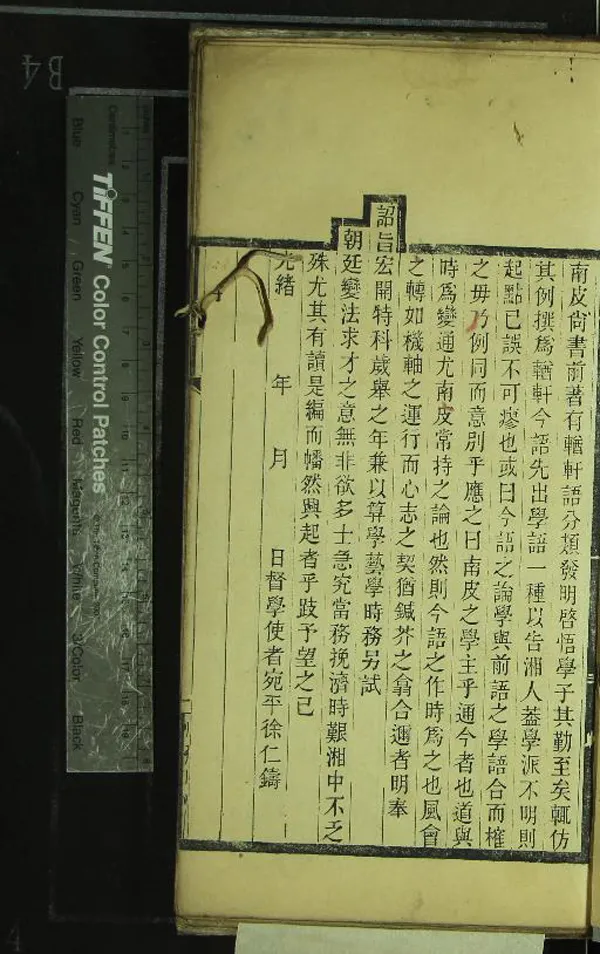 南皮尙書前著有輶軒語分類發明啓悟學子其勤至矣輒仿
其例撰爲輶軒今語先出學語一種以告湘人葢學派不明則
起點已誤不可瘳也或曰今語之論學與前語之學語合而榷
之毋乃例同而意別乎應之曰南皮之學主乎通今者也道與
時爲變通尤南皮常持之論也然則今語之作時爲之也風會
之轉如機軸之運行而心志之契猶鍼芥之翕合邇者明奉
詔旨宏開特科歲舉之年兼以算學藝學時務另試
朝廷變法求才之意無非欲多士急究當務挽濟時艱湘中不乏
殊尤其有讀是編而幡然興起者乎跂予望之已
光緒 年 月 日督學使者宛平徐仁鑄
B4
TIFFEN Color Control Patches
Blue Cyan Green Yellow Red Magenta White 3/Color Black
4